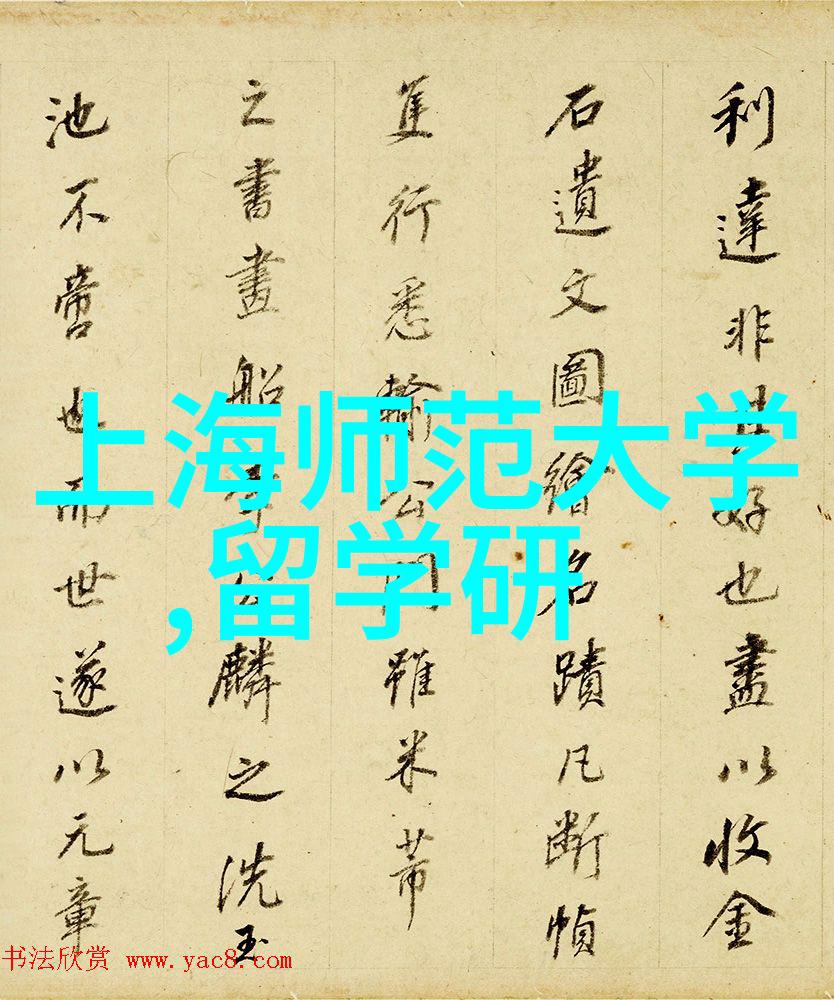 利達非其好也盡以收金
石遺文圖繪名蹟凡斷幀
隻行悉輸公門雖米芾
之書畫船李公麟之洗玉
池不啻也而世遂以元章
上海师范大学
,留学研
书法欣赏 www.yac8.com